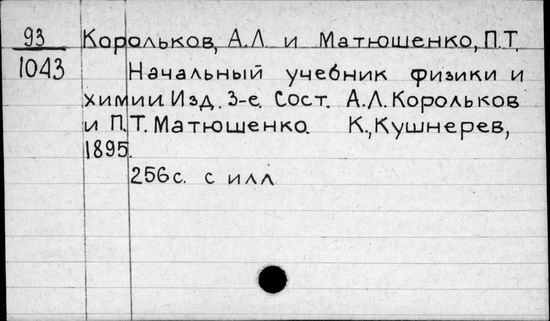 93 Корольков, А.Л. и Матюшенко, П.Т.
1043 Начальный учебник физики и
химии. Изд. 3-е. Сост. А.Л. Корольков
и П.Т. Матюшенко. К., Кушнерев,
1895.
256с. с илл